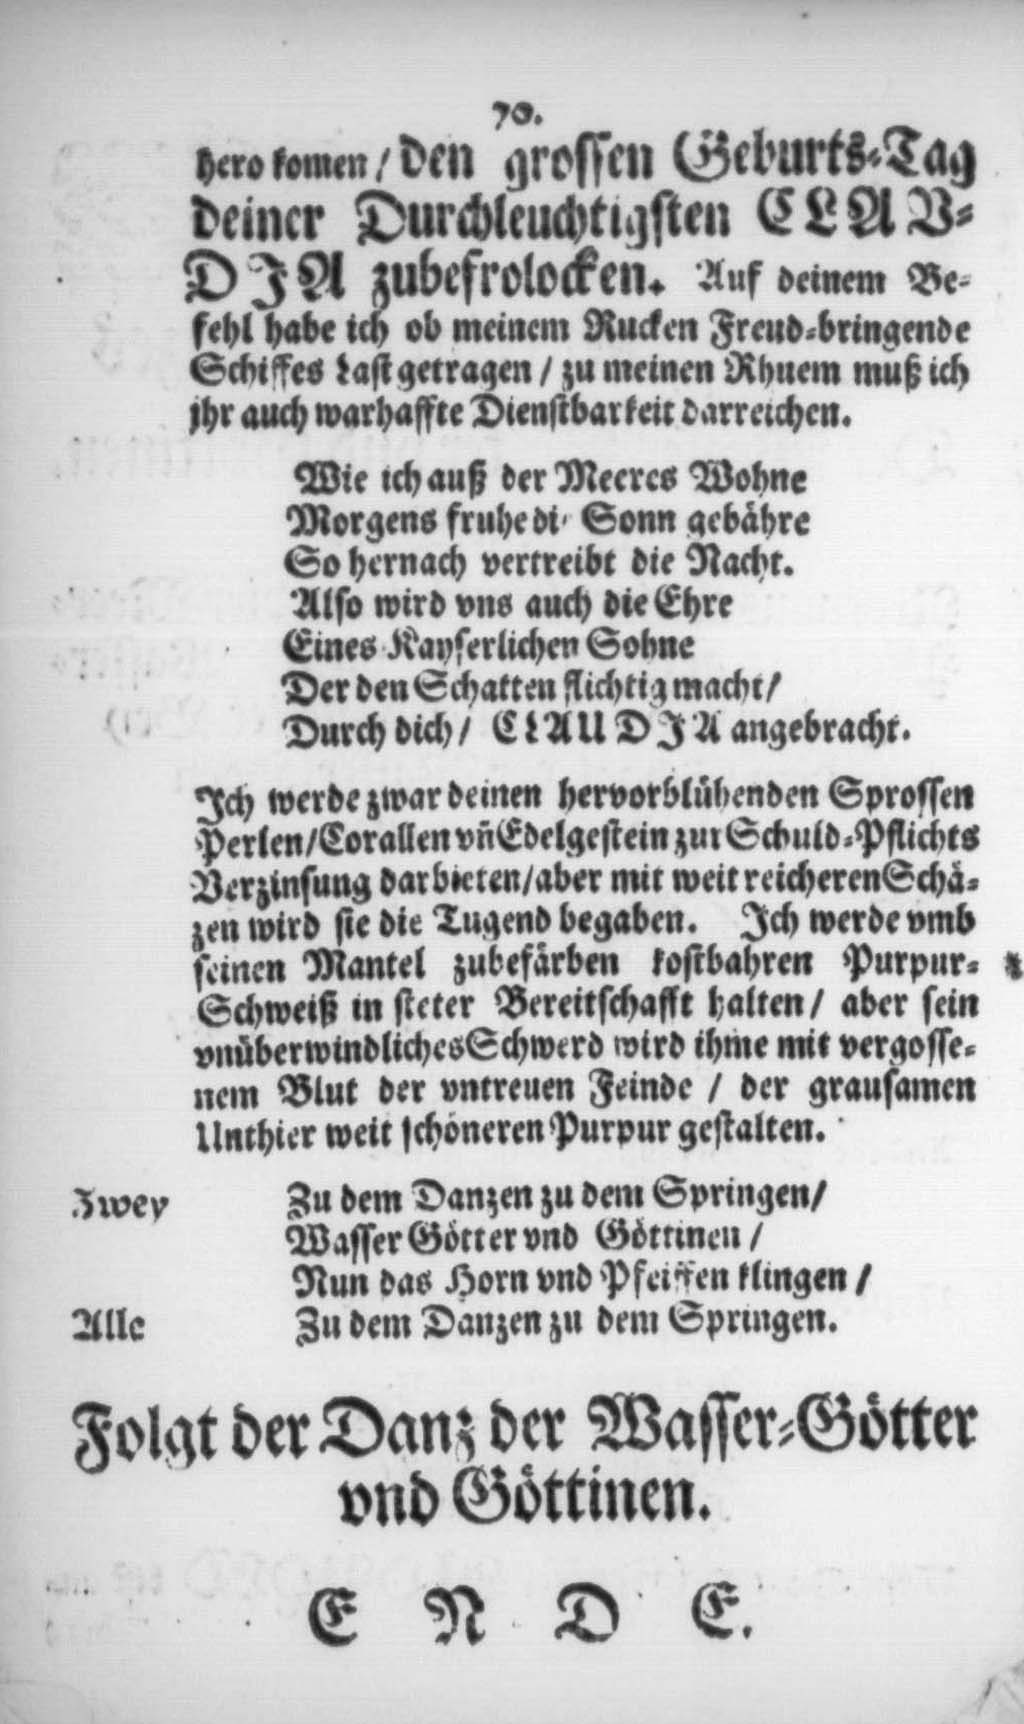 70.
hero komen / den grossen Geburts-Tag
deiner Durchleuchtigsten CLAV-
DJA zubefrolocken. Auf deinem Be-
fehl habe ich ob meinem Rucken Freud-bringende
Schiffes Last getragen / zu meinen Rhuem muß ich
jhr auch warhaffte Dienstbarkeit darreichen.
Wie ich auß der Meeres Wohne
Morgens fruhe di Sonn gebähre
So hernach vertreibt die Nacht.
Also wird vns auch die Ehre
Eines Kayserlichen Sohne
Der den Schatten flichtig macht /
Durch dich / CLAUDJA angebracht.
Jch werde zwar deinen hervorblühenden Sprossen
Perlen / Corallen vñ Edelgestein zur Schuld-Pflichts
Verzinsung darbieten / aber mit weit reicheren Schä-
zen wird sie die Tugend begaben. Jch werde vmb
seinen Mantel zubefärben kostbahren Purpur-
Schweiß in steter Bereitschafft halten / aber sein
vnüberwindliches Schwerd wird ihme mit vergosse-
nem Blut der vntreuen Feinde / der grausamen
Unthier weit schöneren Purpur gestalten.
Zwey Zu dem Danzen zu dem Springen /
Wasser Götter vnd Göttinen /
Nun das Horn vnd Pfeiffen klingen /
Alle Zu dem Danzen zu dem Springen.
Folgt der Danz der Wasser-Götter
vnd Göttinen.
E N D E.